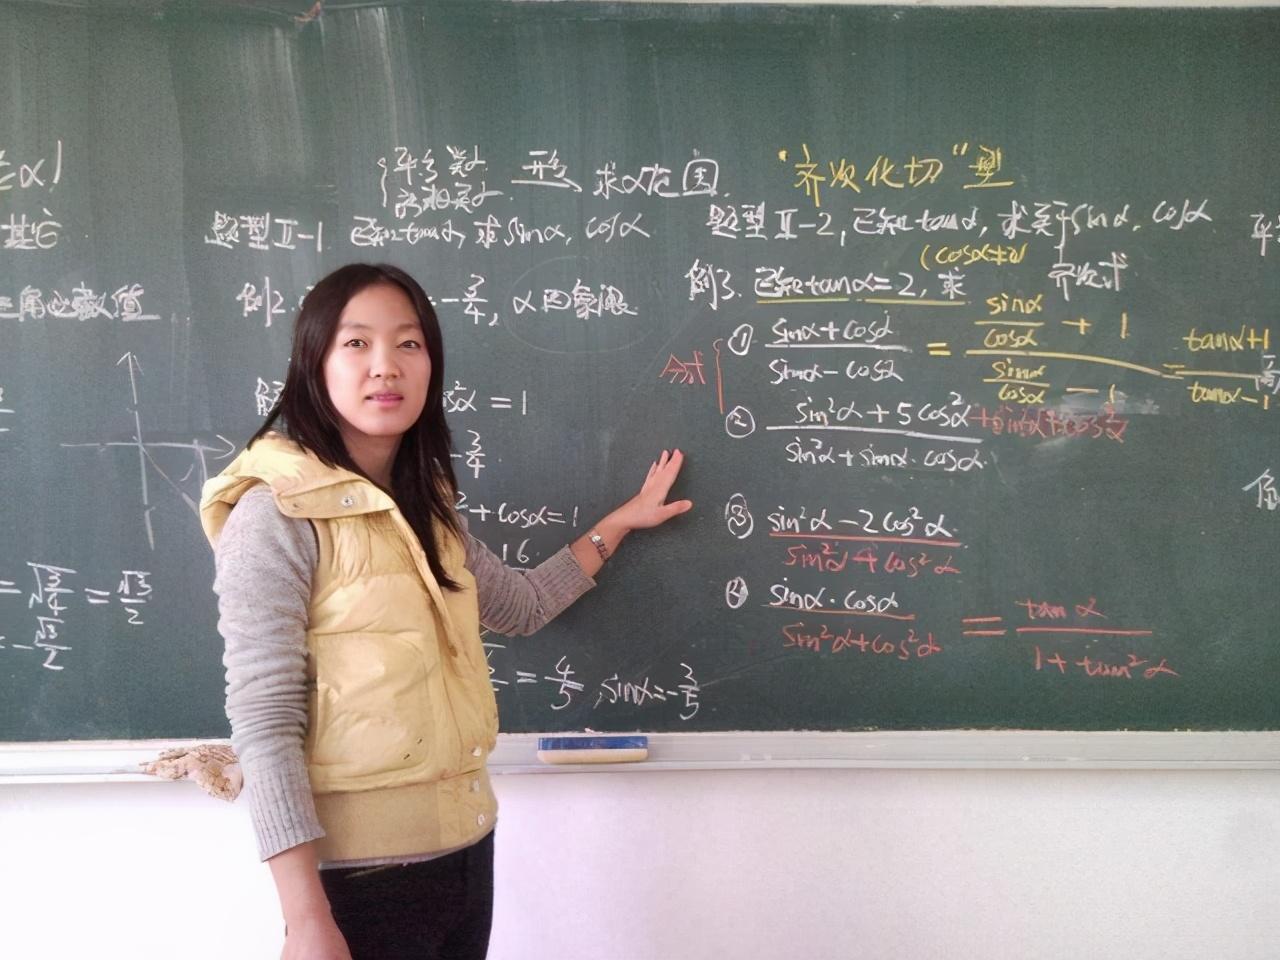 求α范围
"齐次化切"型
题型Ⅱ-1 已知tanα, 求sinα, cosα
题型Ⅱ-2, 已知tanα, 求关于sinα, cosα
(cosα≠0) 齐次式
三角函数值
例2. -3/4, α四象限
例3. 已知tanα=2, 求
分式
① (sinα+cosα)/(sinα-cosα) = (sinα/cosα + 1)/(sinα/cosα - 1) = (tanα+1)/(tanα-1)
② (sin²α+5cos²α)/(sin²α+sinα·cosα)
③ (sin²α-2cos²α)/(sin²α+cos²α)
④ (sinα·cosα)/(sin²α+cos²α) = tanα/(1+tan²α)
cos²α=1
-3/4
²+cosα=1
16
=√(3/4)=√3/2
=4/5, sinα=-3/5